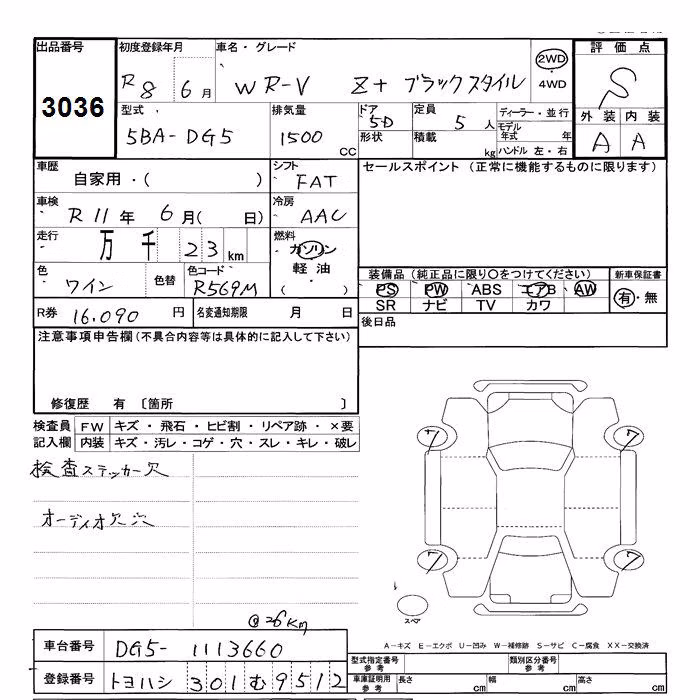 出品番号
3036
初度登録年月
R8 6月
車名・グレード
WR-V Z+ ブラックスタイル
2WD
4WD
評価点
S
外装 内装
A A
型式
5BA-DG5
排気量
1500 CC
ドア
5D
形状
定員
5人
積載
kg
ディーラー・並行
モデル年式 年
ハンドル 左・右
車歴
自家用・( )
シフト
FAT
セールスポイント (正常に機能するものに限ります)
車検
R11年 6月( 日)
冷房
AAC
走行
万 千 23 km
燃料
ガソリン
軽油
( )
色
ワイン
色替
色コード
R569M
装備品 (純正品に限り○をつけてください)
PS PW ABS エアB AW
SR ナビ TV カワ
新車保証書
有・無
R券 16.090 円
名変通知期限 月 日
後日品
注意事項申告欄(不具合内容等は具体的に記入して下さい)
修復歴 有 〔箇所 〕
検査員記入欄
FW キズ・飛石・ヒビ割・リペア跡・×要
内装 キズ・汚レ・コゲ・穴・スレ・キレ・破レ
検査ステッカー欠
オーディオ欠穴
7 7
7 7
スペア
@26km
A－キズ E－エクボ U－凹み W－補修跡 S－サビ C－腐食 XX－交換済
車台番号 DG5-1113660
登録番号 トヨハシ 301む9512
型式指定番号 参考
類別区分番号 参考
車庫証明用 参考
長さ cm 幅 cm 高さ cm